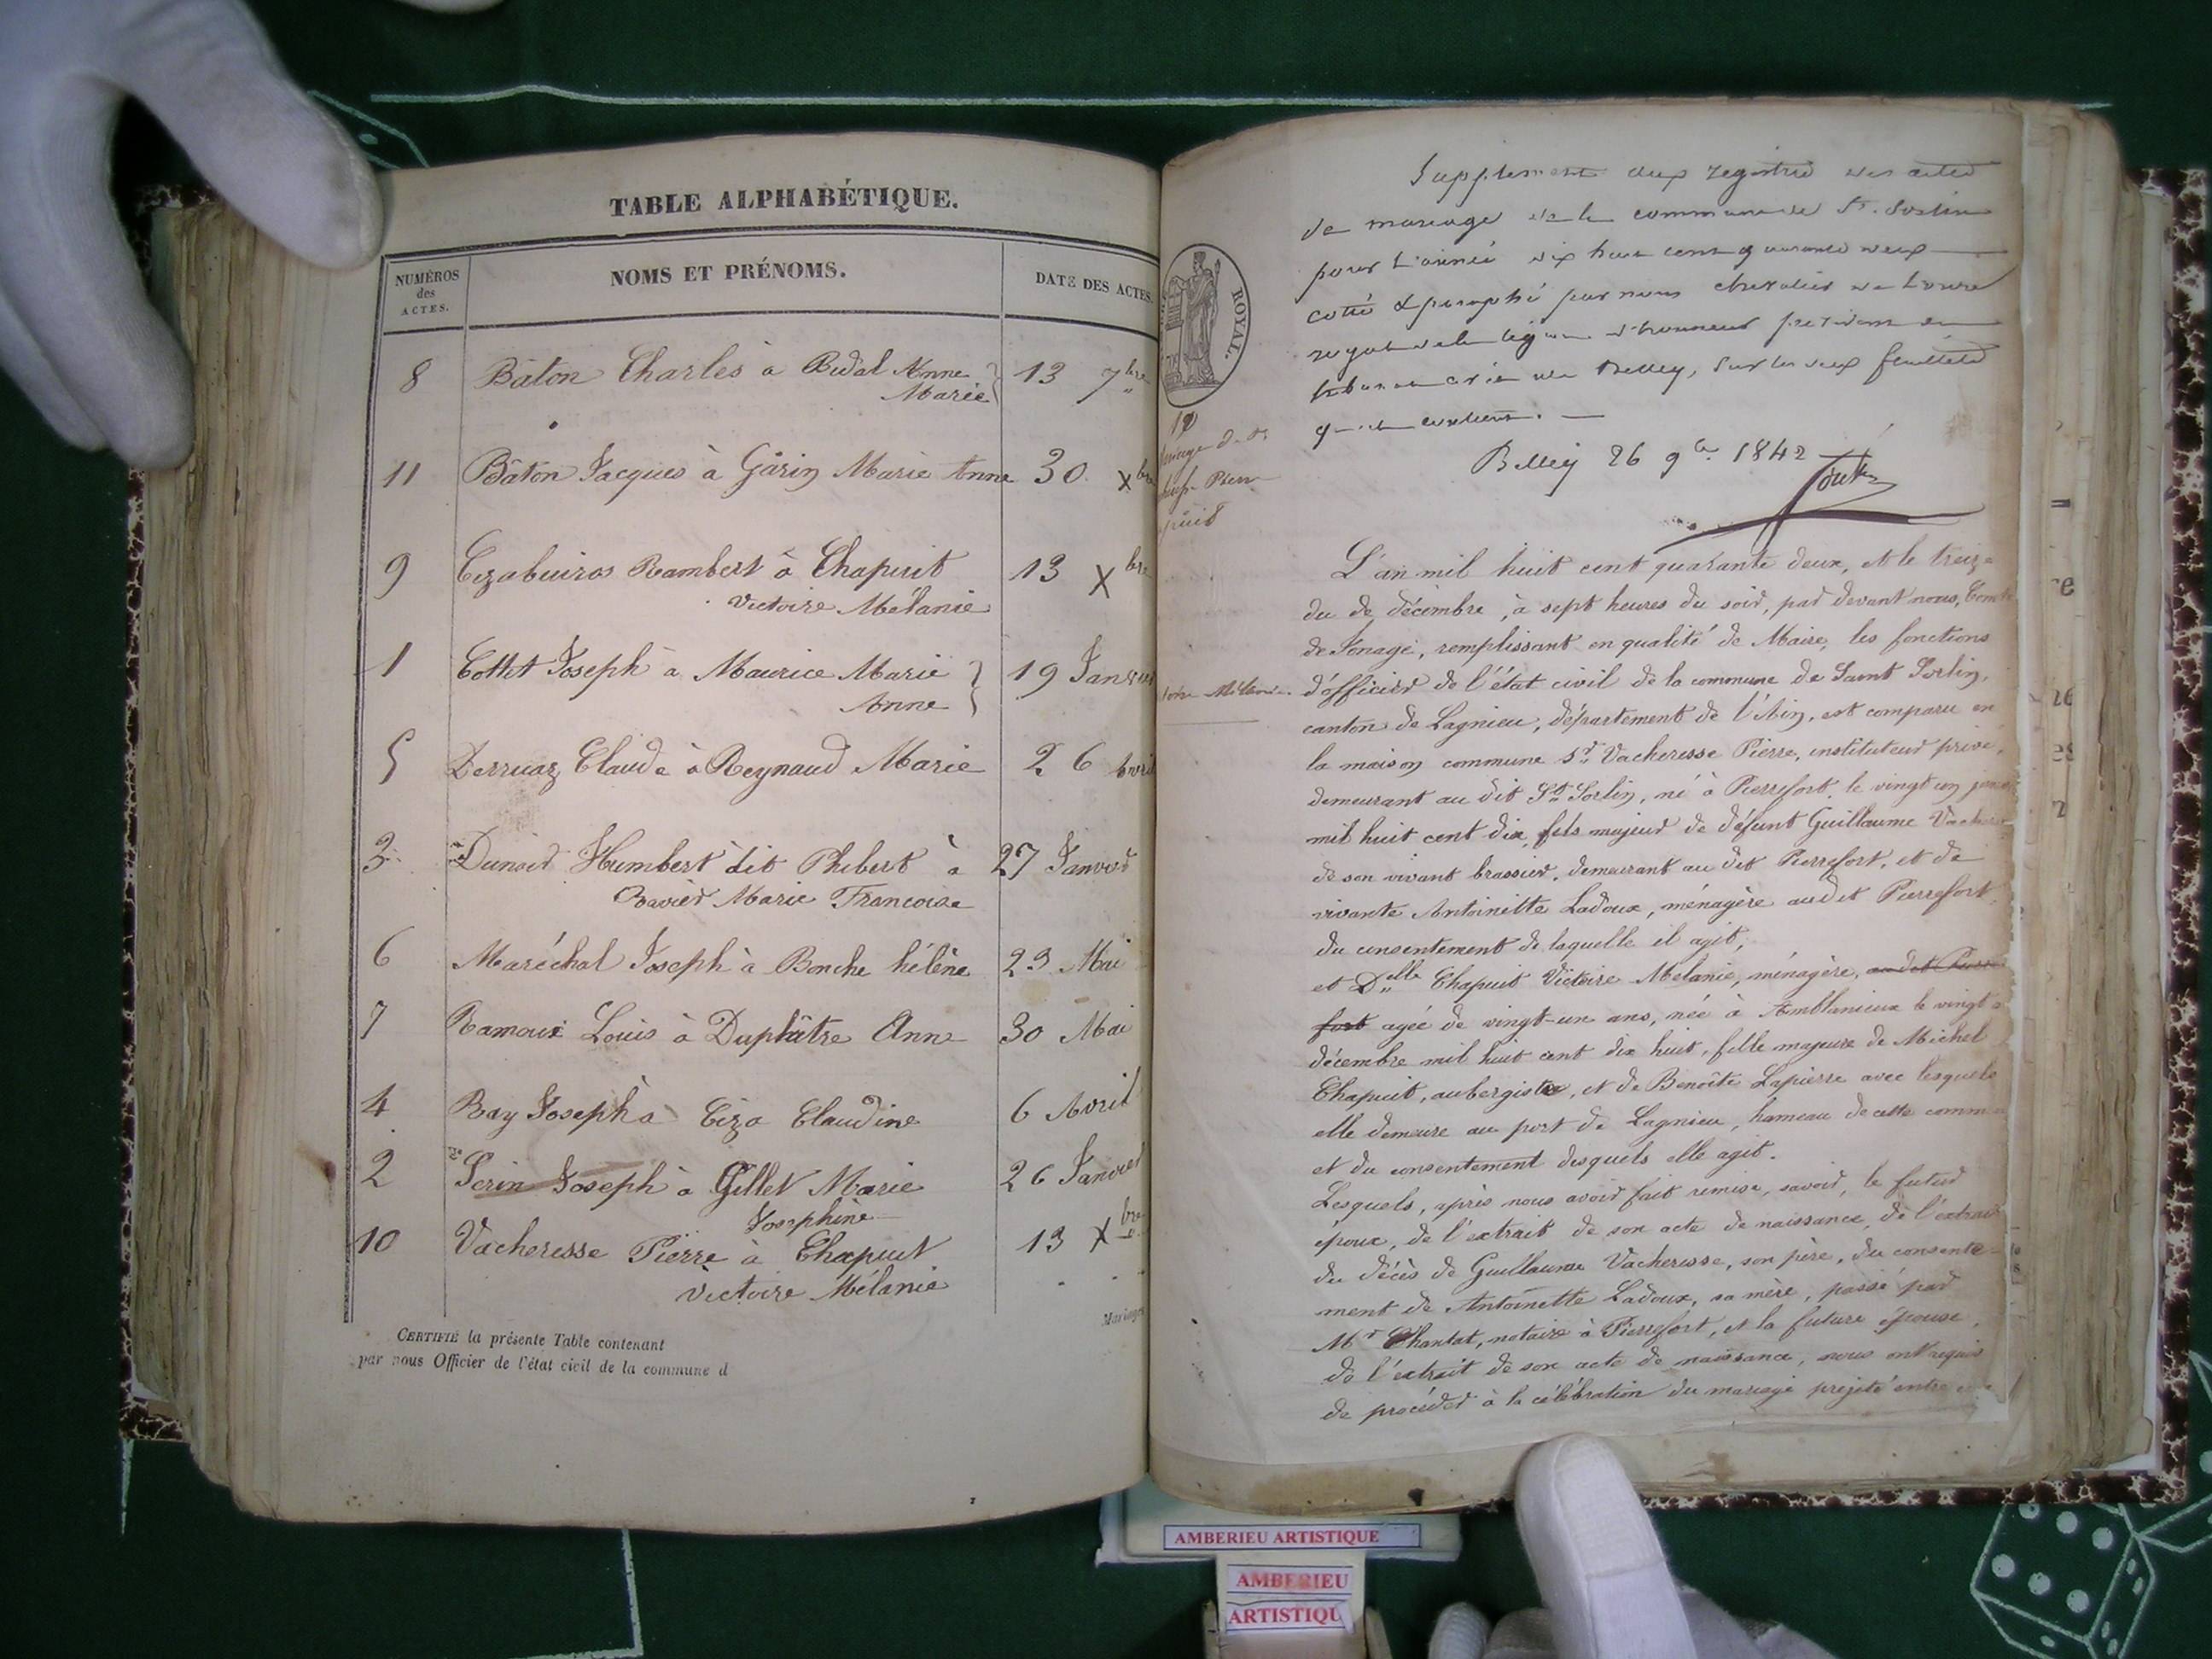 TABLE ALPHABÉTIQUE.
NUMÉROS
des
ACTES.
NOMS ET PRÉNOMS.
DATE DES ACTES.
8 Bâton Charles à Bidal Anne 13 7bre
Marie
11 Bâton Jacques à Garin Marie Anne 30 Xbre
9 Rambert à Chapuit 13 Xbre
Victoire Mélanie
1 Cottet Joseph à Maurice Marie 19 Janvier
Anne
5 Derruaz Claude à Reynaud Marie 26 Avril
3 Dunoid Humbert dit Phibert à 27 Janvier
Marie Francoise
6 Maréchal Joseph à Bonche hélène 23 Mai
7 Ramoux Louis à Duplâtre Anne 30 Mai
4 Ray Joseph à Ciza Claudine 6 Avril
2 Serin Joseph à Gillet Marie 26 Janvier
Josephine
10 Vacheresse Pierre à Chapuit 13 Xbre
Victoire Mélanie
Mariages
CERTIFIÉ la présente Table contenant
par nous Officier de l'état civil de la commune d
ROYAL.
Supplement aux registres des actes
de mariage de la commune de St. Sorlin
pour l'année dix huit cent quarante deux
cotté & paraphé par nous chevalier de l'ordre
royal de la légion d'honneur président du
tribunal civil de Belley, sur les deux feuillets
Belley 26 9bre 1842
10
L'an mil huit cent quarante deux, et le treize
du de décembre, à sept heures du soir, par devant nous, Comte
de Sonage, remplissant en qualité de Maire, les fonctions
d'officier de l'état civil de la commune de Saint Sorlin,
canton de Lagnieu, département de l'Ain, est comparu en
la maison commune Sr. Vacheresse Pierre, instituteur privé,
demeurant au dit St Sorlin, né à Pierrefort, le vingt un
mil huit cent dix, fils majeur de défunt Guillaume
de son vivant brassier, demeurant au dit Pierrefort, et de
vivante Antoinette Ladoux, ménagère audit Pierrefort,
du consentement de laquelle il agit;
et Delle Chapuit Victoire Melanie, ménagère, au dit Pierre
fort agée de vingt-un ans, née à Amblanieux le vingt
décembre mil huit cent dix huit, fille majeure de Michel
Chapuit, aubergiste, et de Benoîte Lapierre avec lesquels
elle demeure au port de Lagnieu, hameau de cette
et du consentement desquels elle agit.
Lesquels, après nous avoir fait remise, savoir, le futur
époux, de l'extrait de son acte de naissance, de l'extrait
du décès de Guillaume Vacheresse, son père, du consente-
ment de Antoinette Ladoux, sa mère, passé par
Mr Chantat, notaire à Pierrefort, et la future épouse,
de l'extrait de son acte de naissance, nous ont requis
de procéder à la célébration du mariage projeté entre
AMBERIEU ARTISTIQUE
AMBERIEU
ARTISTIQU